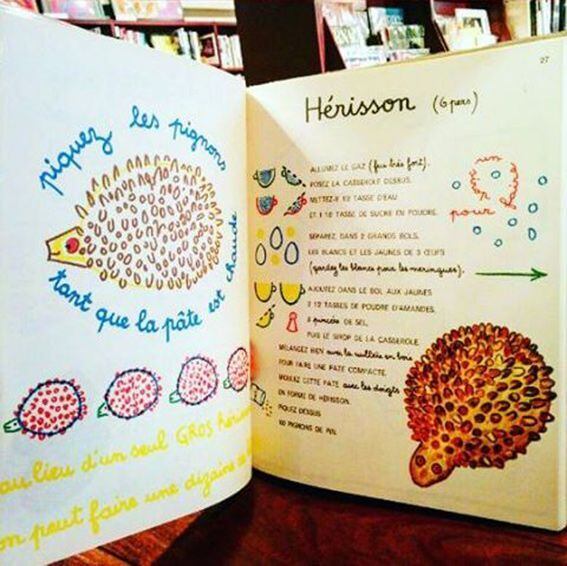 piquez les pignons
tant que la pâte est chaude
au lieu d'un seul GROS
on peut faire une dizaine
27
Hérisson (6 pers)
ALLUMEZ LE GAZ (feu très fort).
POSEZ LA CASSEROLE DESSUS.
METTEZ-Y 1/2 TASSE D'EAU
ET 1 1/2 TASSE DE SUCRE EN POUDRE.
SÉPAREZ, DANS 2 GRANDS BOLS,
LES BLANCS ET LES JAUNES DE 3 ŒUFS
(gardez les blancs pour les meringues).
AJOUTEZ DANS LE BOL AUX JAUNES
2 1/2 TASSES DE POUDRE D'AMANDES,
2 pincées DE SEL,
PUIS LE SIROP DE LA CASSEROLE.
MÉLANGEZ BIEN avec la cuillère en bois
POUR FAIRE UNE PATE COMPACTE.
MOULEZ CETTE PATE avec les doigts
EN FORME DE HÉRISSON.
PIQUEZ DESSUS
100 PIGNONS DE PIN.
pour